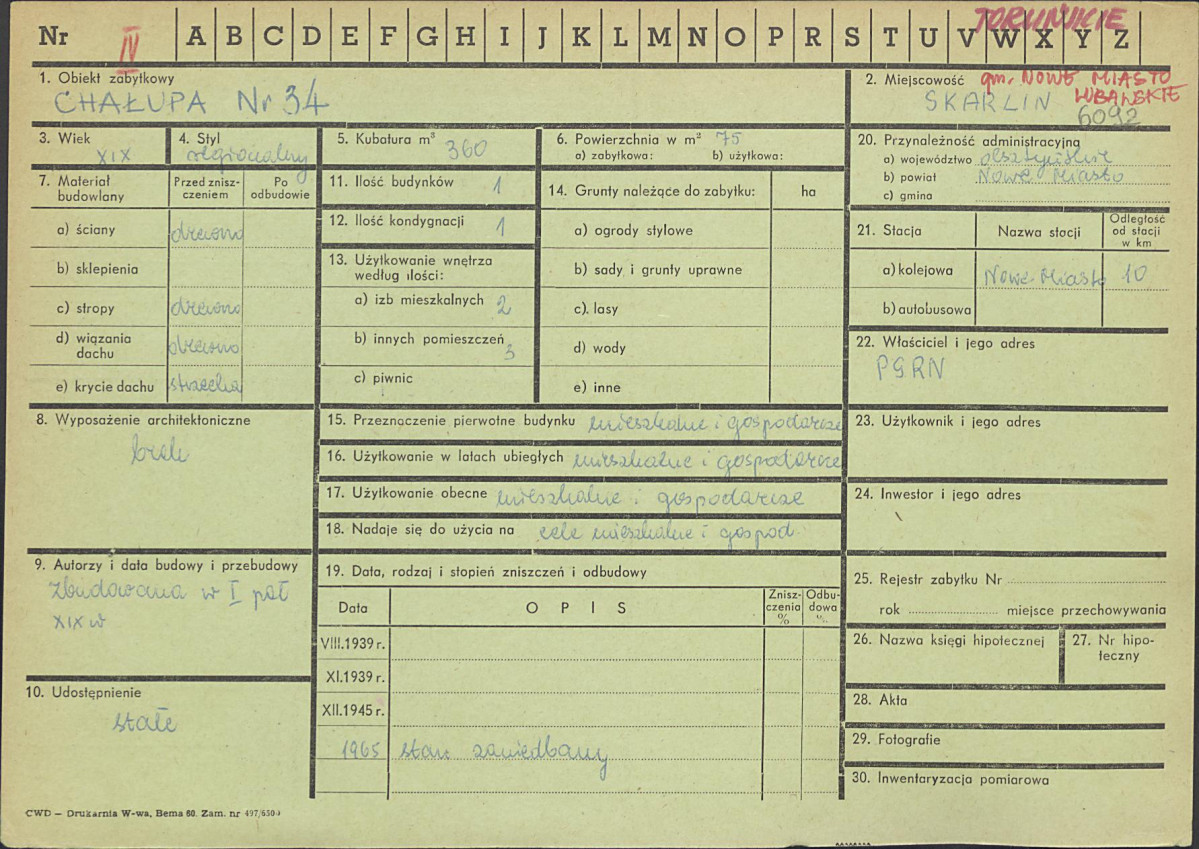 TORUŃSKIE
Nr IV A B C D E F G H I J K L M N O P R S T U V W X Y Z
1. Obiekt zabytkowy
CHAŁUPA Nr 34
2. Miejscowość gm. NOWE MIASTO
LUBAWSKIE
SKARLIN
6092
3. Wiek
XIX
4. Styl
regionalny
5. Kubatura m³ 360
6. Powierzchnia w m² 75
a) zabytkowa: b) użytkowa:
7. Materiał budowlany
Przed zniszczeniem
Po odbudowie
a) ściany drewno
b) sklepienia
c) stropy drewno
d) wiązania dachu drewno
e) krycie dachu strzecha
8. Wyposażenie architektoniczne
brak
9. Autorzy i data budowy i przebudowy
Zbudowana w I poł
XIX w
10. Udostępnienie
stałe
11. Ilość budynków 1
12. Ilość kondygnacji 1
13. Użytkowanie wnętrza
według ilości:
a) izb mieszkalnych 2
b) innych pomieszczeń 3
c) piwnic
14. Grunty należące do zabytku: ha
a) ogrody stylowe
b) sady i grunty uprawne
c). lasy
d) wody
e) inne
15. Przeznaczenie pierwotne budynku mieszkalne i gospodarcze
16. Użytkowanie w latach ubiegłych mieszkalne i gospodarcze
17. Użytkowanie obecne mieszkalne i gospodarcze
18. Nadaje się do użycia na cele mieszkalne i gospod.
19. Data, rodzaj i stopień zniszczeń i odbudowy
Data OPIS Zniszczenia % Odbudowa %
VIII.1939 r.
XI.1939 r.
XII.1945 r.
1965 stan zaniedbany
20. Przynależność administracyjna
a) województwo olsztyńskie
b) powiat Nowe Miasto
c) gmina
21. Stacja Nazwa stacji Odległość od stacji w km
a) kolejowa Nowe Miasto 10
b) autobusowa
22. Właściciel i jego adres
PGRN
23. Użytkownik i jego adres
24. Inwestor i jego adres
25. Rejestr zabytku Nr
rok miejsce przechowywania
26. Nazwa księgi hipotecznej
27. Nr hipoteczny
28. Akta
29. Fotografie
30. Inwentaryzacja pomiarowa
CWD — Drukarnia W-wa, Bema 60. Zam. nr 497/650